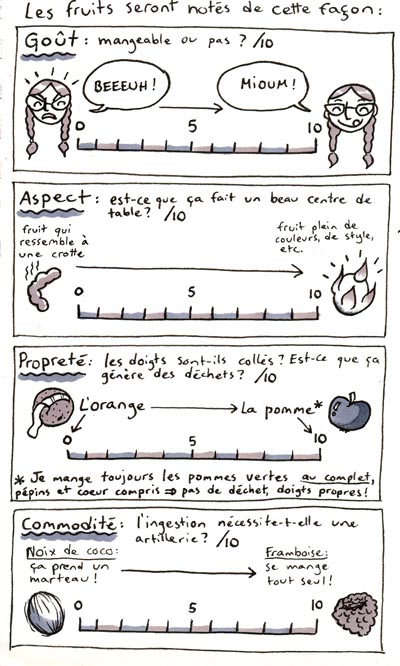 Les fruits seront notés de cette façon:
Goût: mangeable ou pas? /10
BEEEUH!
MIOUM!
0 5 10
Aspect: est-ce que ça fait un beau centre de
table? /10
fruit qui
ressemble à
une crotte
fruit plein de
couleurs, de style,
etc.
0 5 10
Propreté: les doigts sont-ils collés? Est-ce que ça
génère des déchets? /10
L'orange
La pomme*
0 5 10
* Je mange toujours les pommes vertes au complet,
pépins et coeur compris ⇒ pas de déchet, doigts propres!
Commodité: l'ingestion nécessite-t-elle une
artillerie? /10
Noix de coco:
ça prend un
marteau!
Framboise:
se mange
tout seul!
0 5 10